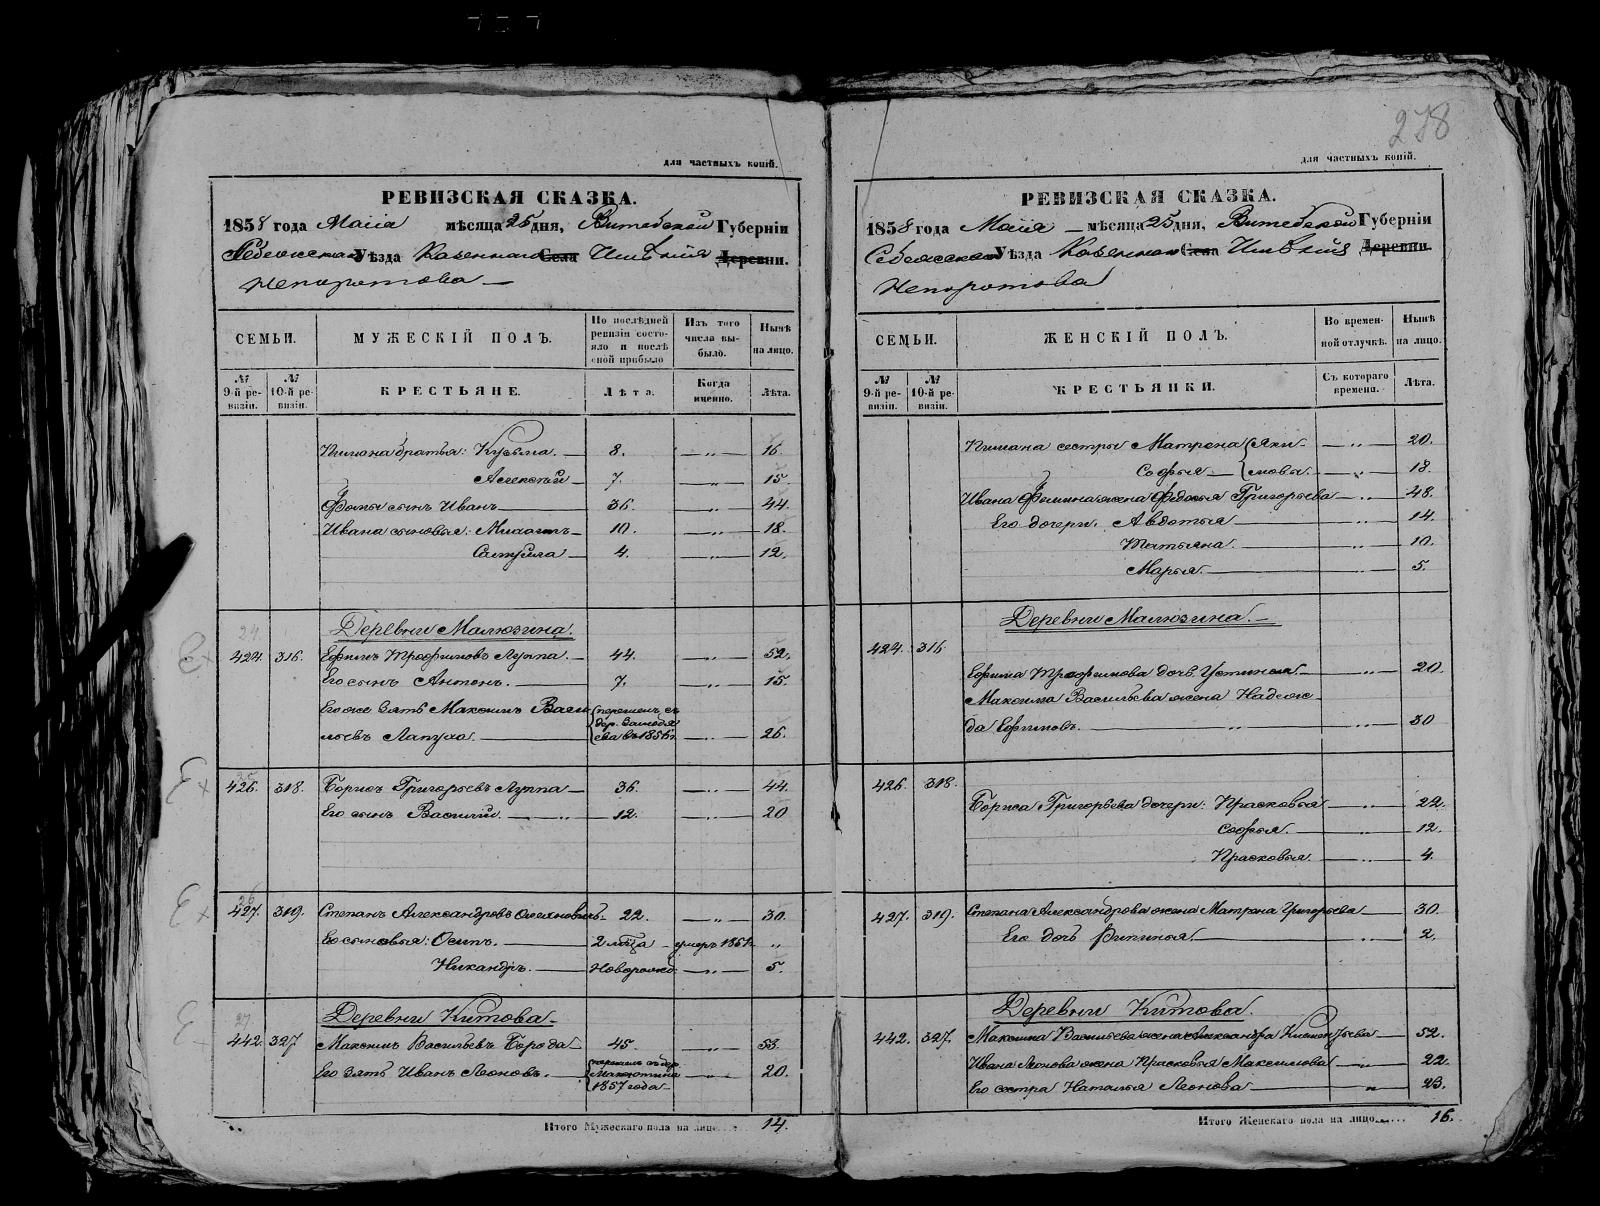 278
для частныхъ копій.
РЕВИЗСКАЯ СКАЗКА.
1858 года Маія мѣсяца 25 дня, Витебской Губерніи
Себежскаго Уѣзда Казеннаго Села Имѣнія Деревни.
Непоротова
СЕМЬИ.
МУЖЕСКІЙ ПОЛЪ.
По послѣдней ревизіи состояло и послѣ оной прибыло
Изъ того числа выбыло.
Нынѣ на лицо.
№ 9-й ревизіи.
№ 10-й ревизіи.
КРЕСТЬЯНЕ.
Лѣта.
Когда именно.
Лѣта.
братья: Кузьма. 8. 16.
Алексѣй 7. 15.
Ѳомы сынъ Иванъ 36. 44.
Ивана сыновья: 10. 18.
Самуила 4. 12.
24.
Деревни Малюзина.
424. 316. Ефимъ Трофимовъ Луппа. 44. 52.
Его сынъ Антонъ. 7. 15.
Его же зять Максимъ Василь
евъ Лапухо. 26.
въ 1856
426. 318. Борисъ Григорьевъ Луппа 36. 44.
Его сынъ Василій. 12. 20
26
427. 319. Степанъ Александровъ 22. 30.
Его сыновья: Осипъ. 2 умеръ 1851 „
Никандръ. Новорожд. 5.
27
Деревни Китова.
442. 327 Максимъ Васильевъ Борода 45. 53.
Его зять Иванъ Леоновъ. 20.
1857 года
Итого Мужескаго пола на лицо 14.
для частныхъ копій.
РЕВИЗСКАЯ СКАЗКА.
1858 года Маія мѣсяца 25 дня, Витебской Губерніи
Себежскаго Уѣзда Казеннаго Села Имѣнія Деревни.
Непоротова
СЕМЬИ.
ЖЕНСКІЙ ПОЛЪ.
Во временной отлучкѣ.
Нынѣ на лицо.
№ 9-й ревизіи.
№ 10-й ревизіи.
КРЕСТЬЯНКИ.
Съ котораго времени.
Лѣта.
сестры Матрона Яки- 20.
Софья мовы. 18.
Ивана Ѳомина жена Федосья Григорьева 48.
Его дочери: Авдотья 14.
Татьяна. 10.
Марья. 5.
Деревни Малюзина.
424. 316.
Ефима Трофимова дочь Устинья 20.
Максима Васильева жена Надеж-
да Ефимовъ. 30
426. 318.
Бориса Григорьева дочери: Прасковья 22.
Софья. 12.
Прасковья. 4.
427. 319. Степана Александрова жена Матрона Григорьева 30.
Его дочь 2.
Деревни Китова.
442. 327. Максима Васильева жена Александра 52.
Ивана Леонова жена Прасковья Максимова 22.
Его сестра Наталья Леонова 23.
Итого Женскаго пола на лицо 16.